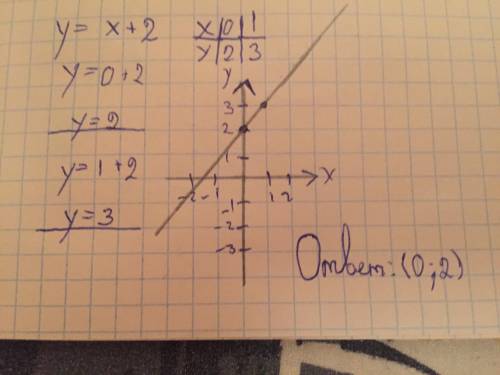 y = x + 2
x 0 1
y 2 3
y = 0 + 2
y = 2
y = 1 + 2
y = 3
y
3
2
1
-2 -1 1 2 x
-1
-2
-3
Ответ: (0; 2)